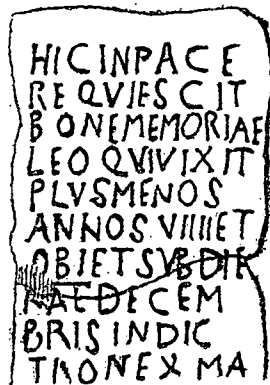 HIC IN PACE
REQVIESCIT
BONEMEMORIAE
LEO QVIVIXIT
PLVSMENOS
ANNOS VIIIIET
OBIET SVB DIE
KAL DECEM
BRIS INDIC
TIONE X MA